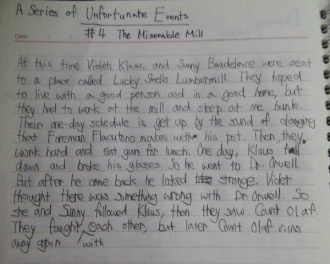 A Series of Unfortunate Events
#4 The Miserable Mill
At this time Violet Klaus, and Sunny Baudelaire were sent
to a place called Lucky Smells Lumbermill. They hoped
to live with a good person and in a good home, but
they had to work at the mill and sleep at one bunk.
Their one-day schedule is get up by the sound of clanging
that Foreman Flacutono makes with his pot. Then, they
work hand and eat gum for lunch. One day, Klaus fell
down and broke his glasses. So he went to Dr. Orwell.
But after he came back he loked strange. Violet
thought there was something wrong with Dr. Orwell. So
she and Sunny followed Klaus, then they saw Count Olaf
They fought with each other, but later Count Olaf runs
away again.